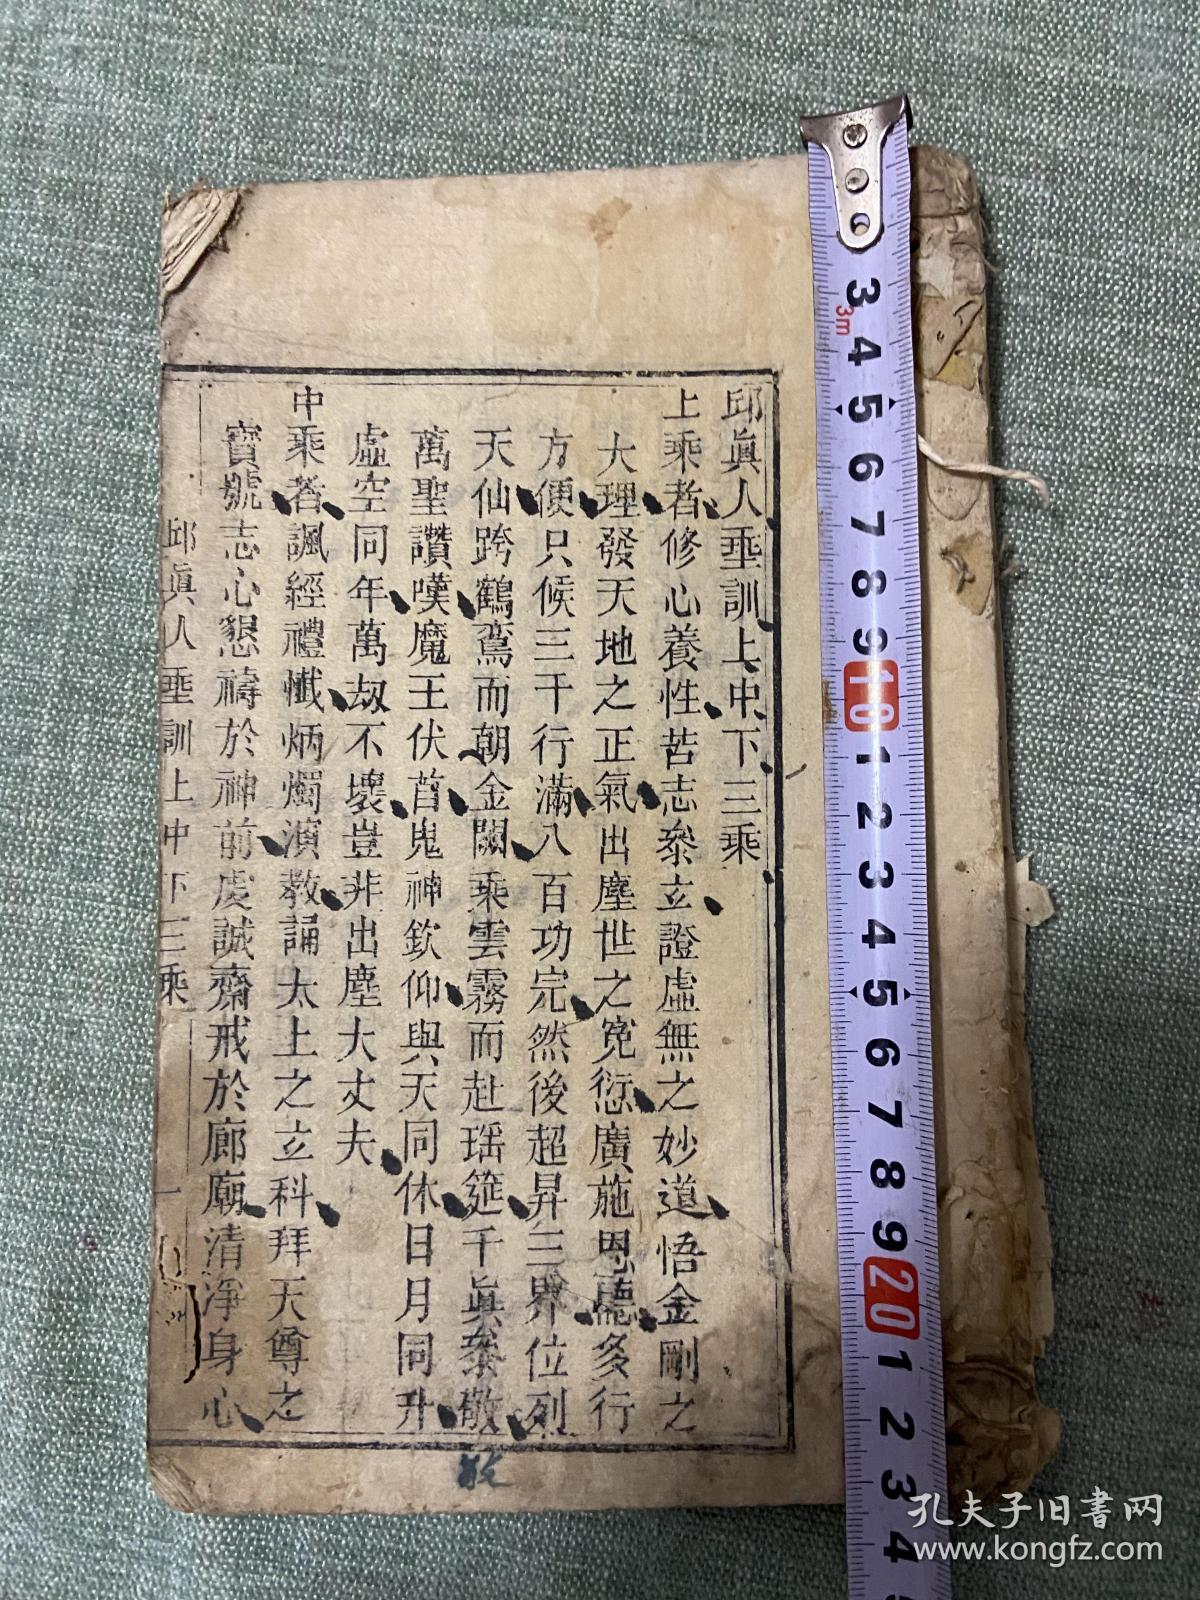 邱眞人垂訓上中下三乘
上乘者修心養性苦志叅立證虛無之妙道悟金剛之
大理發天地之正氣出塵世之寃愆廣施恩德多行
方便只候三千行滿八百功完然後超昇三界位列
天仙跨鶴鸞而朝金闕乘雲霧而赴瑶筵千眞叅敬
萬聖讚嘆魔王伏首鬼神欽仰與天同休日月同升
虛空同年萬刼不壞豈非出塵大丈夫
中乘者諷經禮懺炳燭演教誦太上之立科拜天尊之
寳號志心懇禱於神前虔誠齋戒於廊廟清淨身心
邱眞人垂訓上中下三乘 一
敬
3m
3 4 5 6 7 8 9 10 1 2 3 4 5 6 7 8 9 20 1 2 3 4 5
孔夫子旧書网
www.kongfz.com